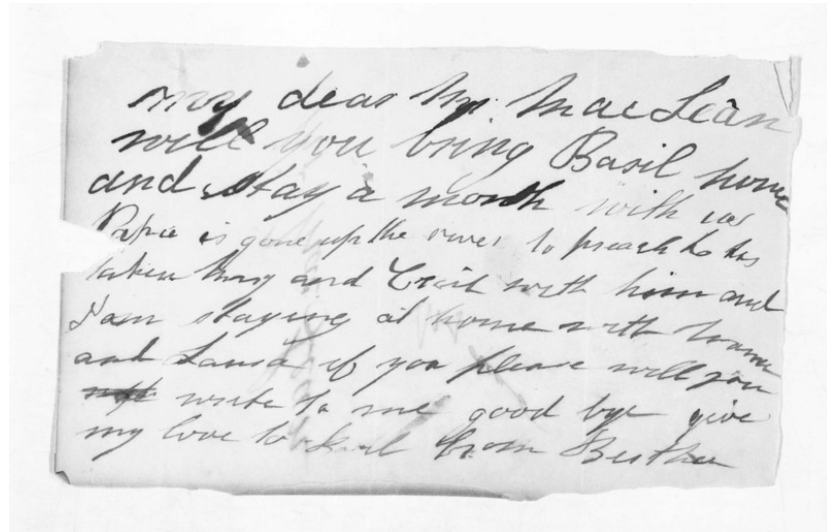 my dear Mr. MacLean
will you bring Basil home
and stay a month with us
Papa is gone up the river to preach he has
taken and Cecil with him and
I am staying at home with Mama
and Laura if you please will you
write to me good bye give
my love to Basil from Bertha